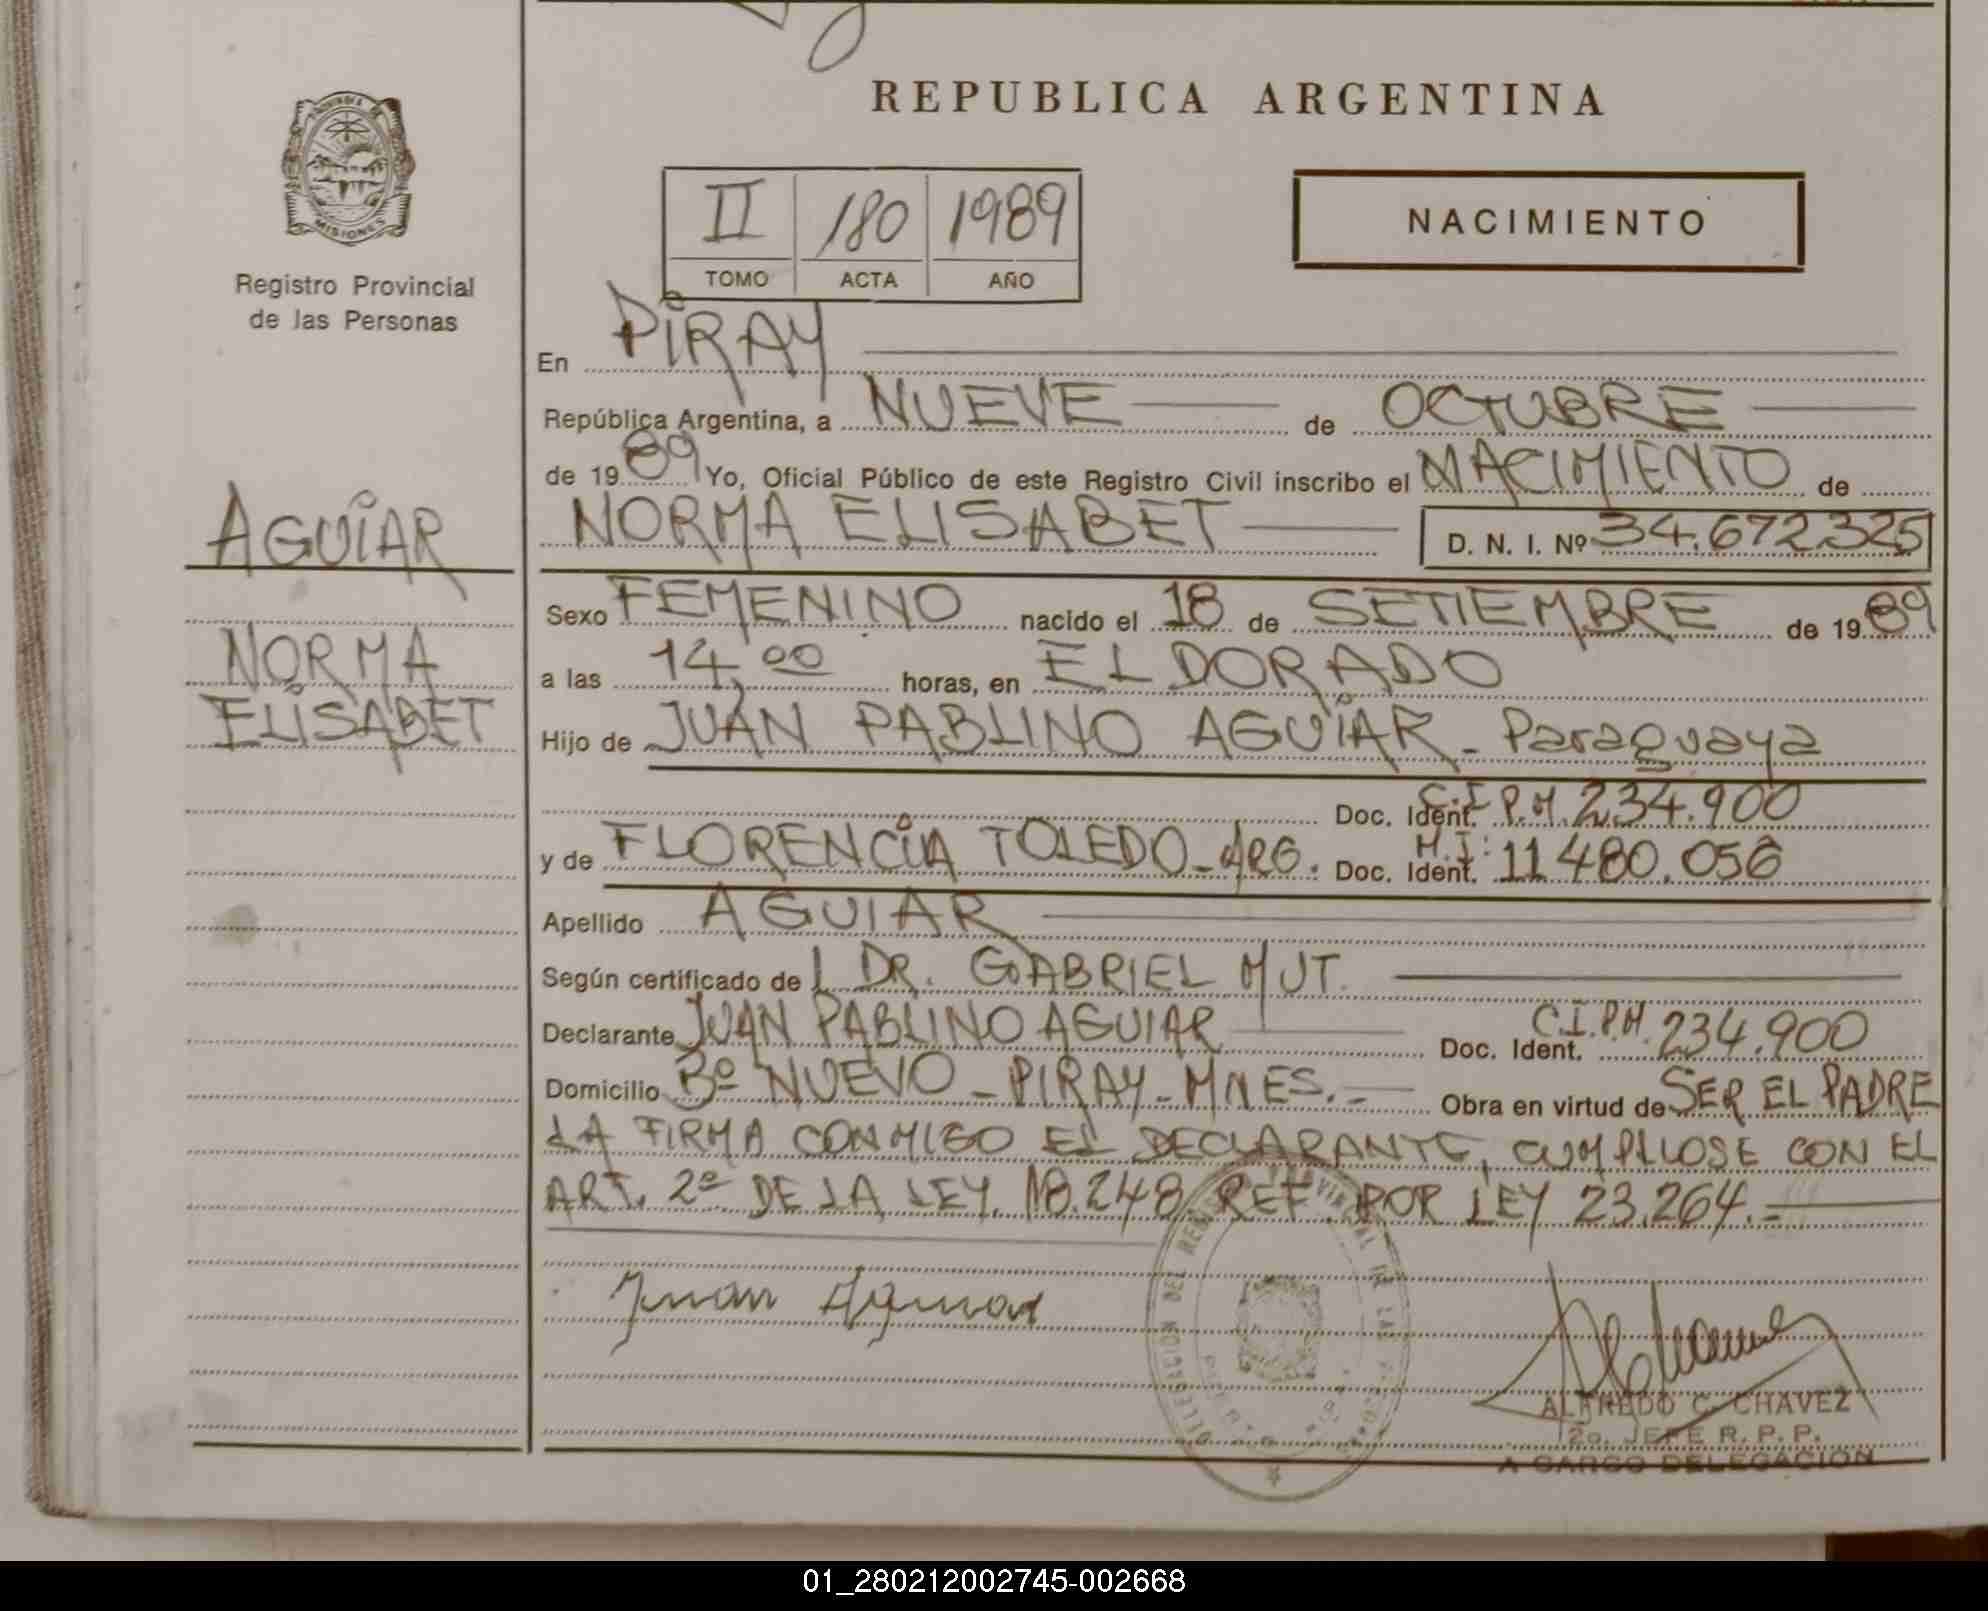 REPUBLICA ARGENTINA
MISIONES
Registro Provincial
de las Personas
II 180 1989
TOMO ACTA AÑO
NACIMIENTO
En PIRAY
República Argentina, a NUEVE de OCTUBRE
de 1989 Yo, Oficial Público de este Registro Civil inscribo el NACIMIENTO de
AGUIAR
NORMA ELISABET D. N. I. Nº 34.672.325
Sexo FEMENINO nacido el 18 de SETIEMBRE de 1989
NORMA
ELISABET
a las 14,00 horas, en ELDORADO
Hijo de JUAN PABLINO AGUIAR - Paraguaya
Doc. Ident. C.I. P.M. 234.900
y de FLORENCIA TOLEDO - ARG. Doc. Ident. M.I: 11 480.056
Apellido AGUIAR
Según certificado de DR. GABRIEL MUT.
Declarante JUAN PABLINO AGUIAR Doc. Ident. C.I.P.M. 234.900
Domicilio Bº NUEVO - PIRAY - MNES. - Obra en virtud de SER EL PADRE
LA FIRMA CONMIGO EL DECLARANTE, CUMPLIOSE CON EL
ART. 2º DE LA LEY. 18.248 REF. POR LEY 23.264.-
Juan Aguiar
DELEGACION DEL
ALFREDO C. CHAVEZ
2o. JEFE R. P. P.
A CARGO DELEGACION
01_280212002745-002668